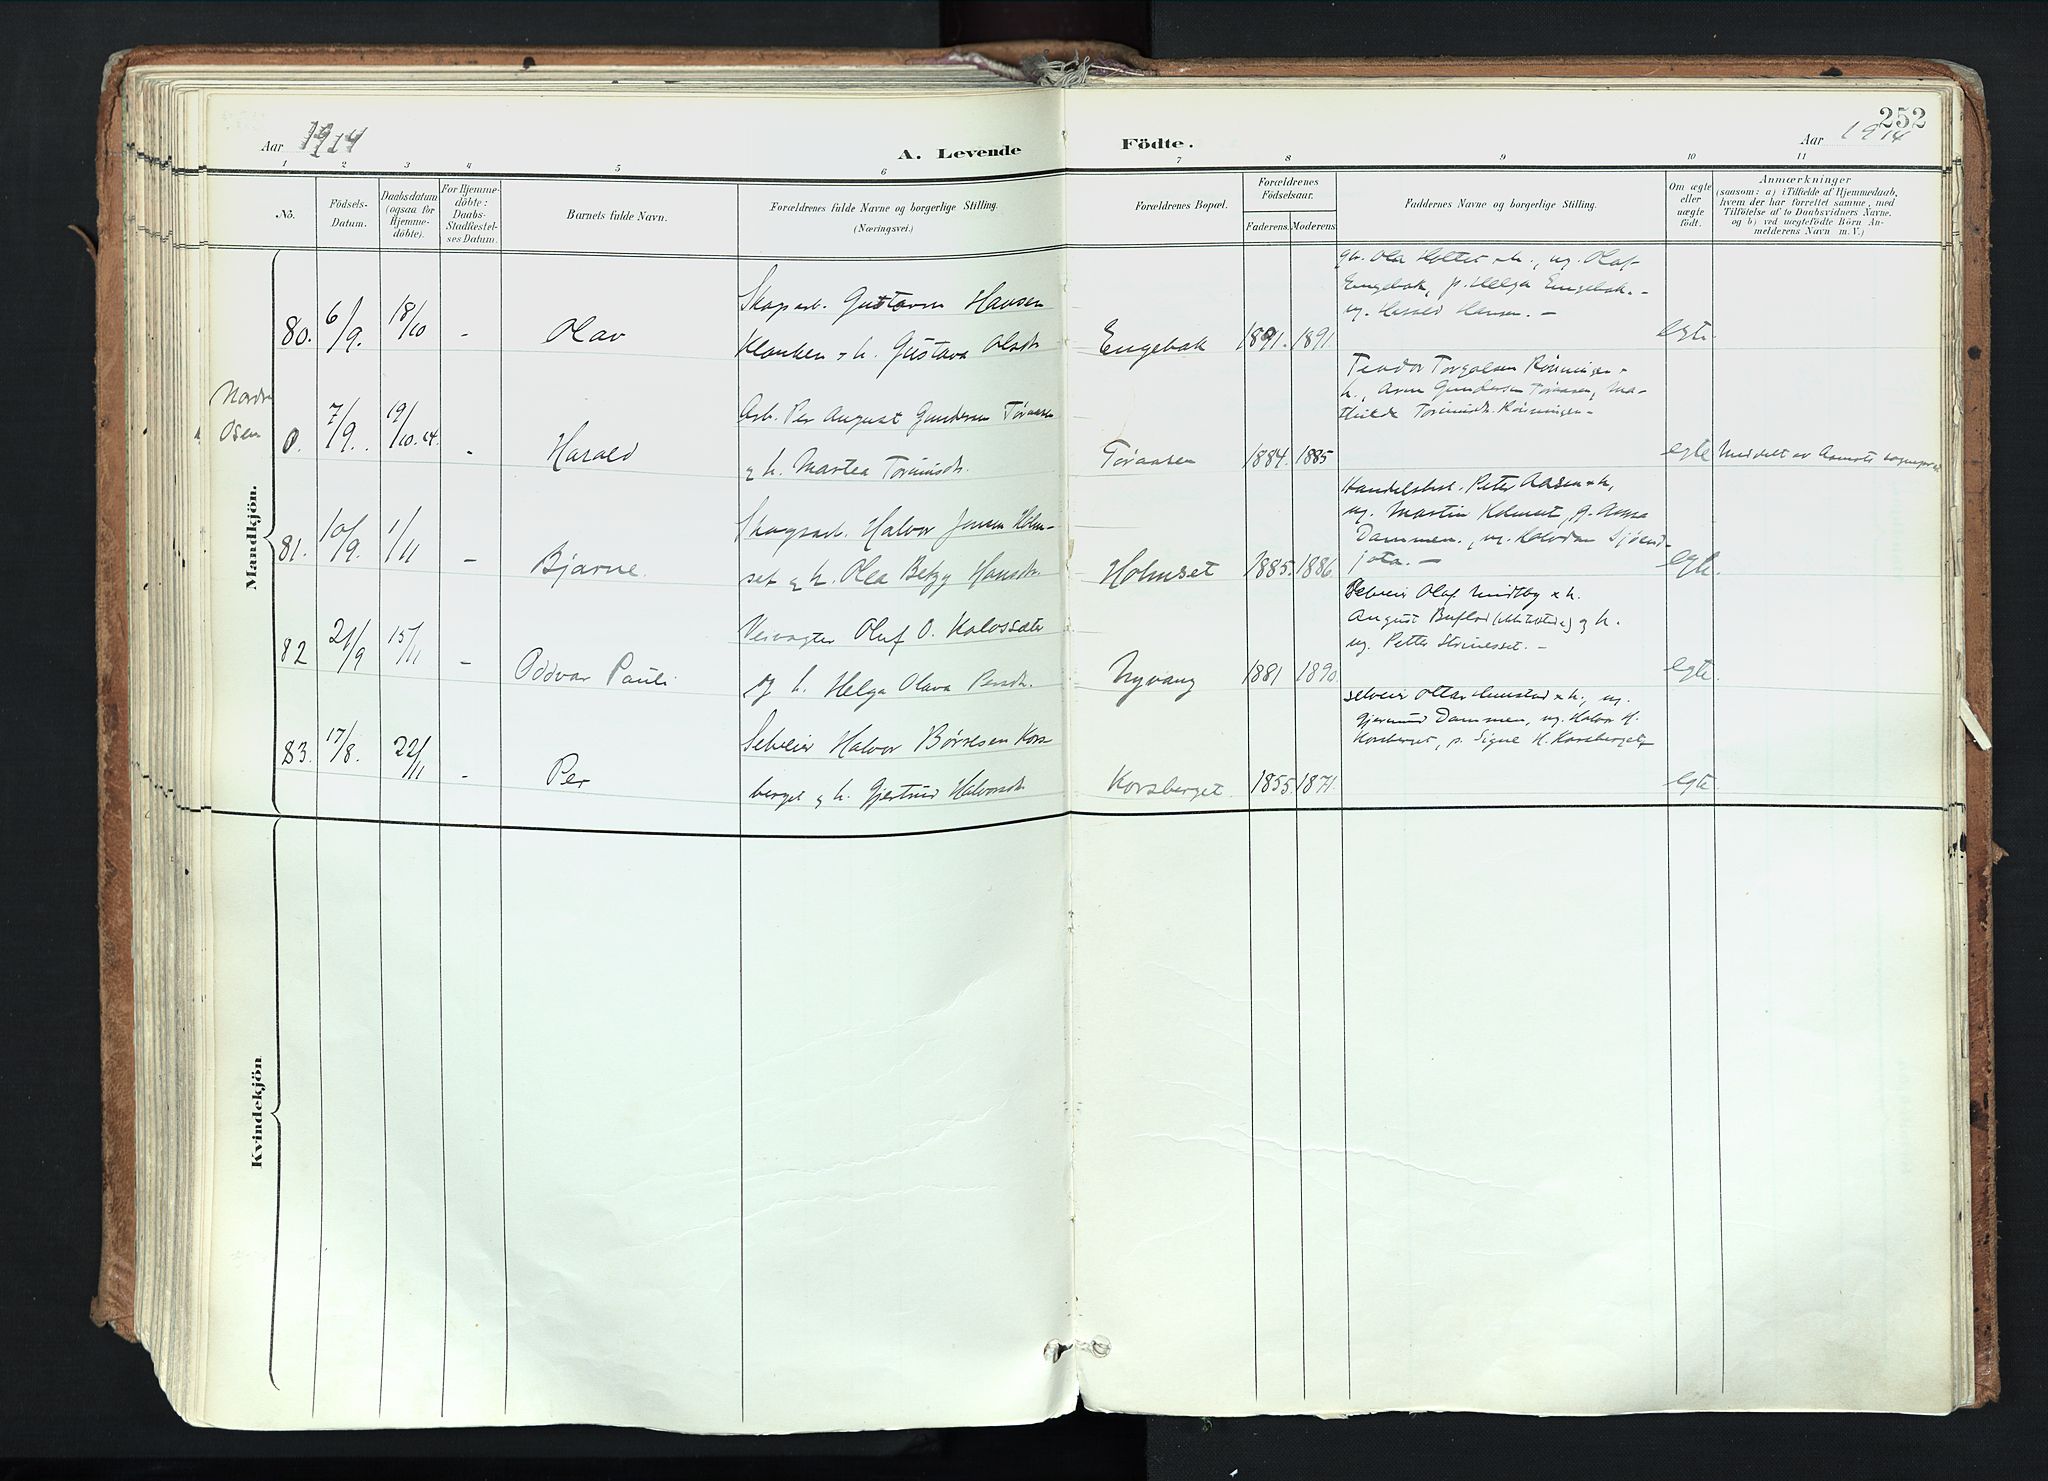 252
Aar 1914
A. Levende
Födte.
Aar 1914
1 2 3 4 5 6 7 8 9 10 11
No.
Födsels-
Datum.
Daabsdatum
(ogsaa for
Hjemme-
döbte).
For Hjemme-
döbte:
Daabs-
Stadfæstel-
ses Datum.
Barnets fulde Navn.
Forældrenes fulde Navne og borgerlige Stilling.
(Næringsvei.)
Forældrenes Bopæl.
Forældrenes
Födselsaar.
Faderens. Moderens.
Faddernes Navne og borgerlige Stilling.
Om ægte
eller
uægte
födt.
Anmærkninger
(saasom: a) i Tilfælde af Hjemmedaab,
hvem der har forrettet samme, med
Tilföielse af to Daabsvidners Navne.
og b) ved uægtefödte Börn An-
melderens Navn m. V.)
Mandkjön.
80. 6/9. 18/10 - Olav
Skogsarb. Gustavus Hansen
Klanken & h. Gustava Olsdtr.
Engebak 1891. 1891
gb. Ola Holter & h., ug. Olaf
Engebak, p. Helga Engebak. -
ug. Harald Hansen. -
egte.
Nordre
Osen
0. 7/9. 19/10.14. - Harald
Arb. Per August Gundersen Tøraasen
& h. Martea Torinusdtr.
Tøraasen 1884. 1885
Teodor Torgalsen Rønningen &
h., Arne Gundersen Tøraasen, Ma-
thilde Torinusdtr. Rønningen -
egte Meddelt av Aamots sognepræst
81. 10/9. 1/11 - Bjarne.
Skogsarb. Halvor Jensen Holm-
set & h. Olea Betzy Hansdtr.
Holmset 1885. 1886.
Handelsbest. Peter Aasen & h.,
ug. Martin Holmset, p. Anna
Dammen., ug. Halvdan Sjøend-
jota. -
egte.
82 21/9 15/11 - Oddvar Pauli
Veivogter Oluf O. Kolossæter
og h. Helga Olava Persdtr.
Nyvang 1881 1890.
Selveier Olaf Midtby & h.
August Buflod og h.
ug. Petter Strinesset. -
egte.
83. 17/8. 22/11 - Per
Selveier Halvor Børresen Kors-
berget & h. Gjertrud Halvorsdtr.
Korsberget. 1855. 1871.
selveier Ottar Hunstad & h., ug.
Gjermund Dammen, ug. Halvor H.
Korsberget, p. Signe H. Korsberget.
egte.
Kvindekjön